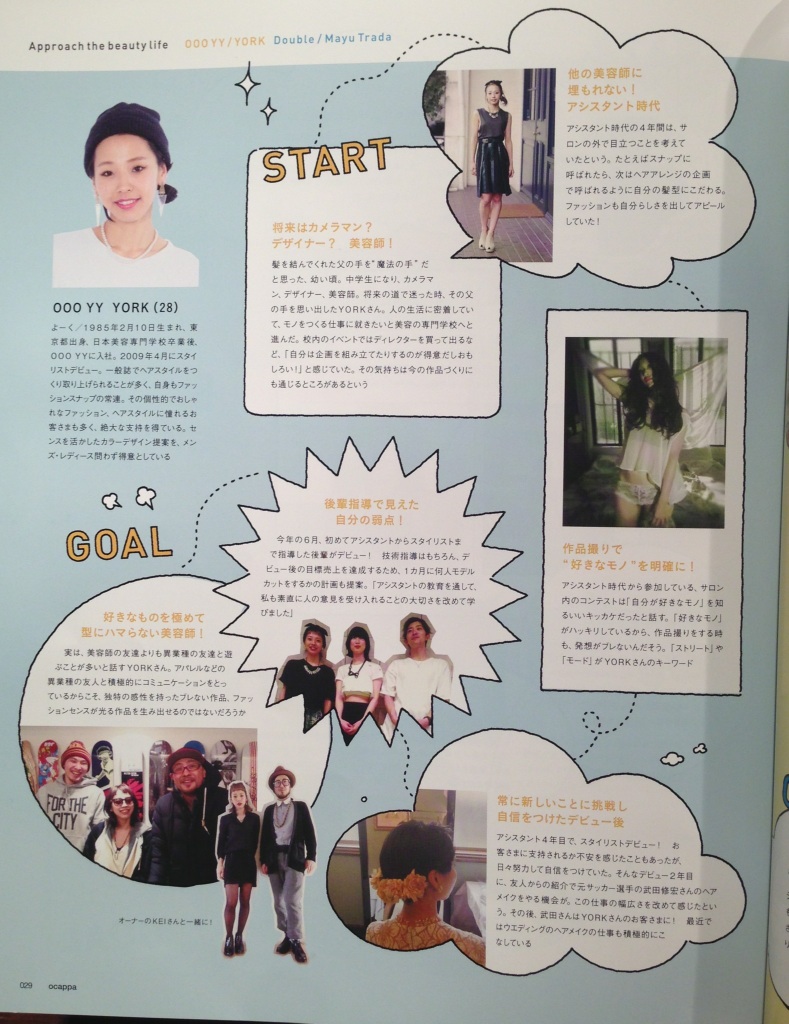 Approach the beauty life OOO YY / YORK Double / Mayu Trada
OOO YY YORK (28)
よーく／1985年2月10日生まれ、東
京都出身。日本美容専門学校卒業後、
OOO YYに入社。2009年4月にスタイ
リストデビュー。一般誌でヘアスタイルをつ
くり取り上げられることが多く、自身もファッ
ションスナップの常連。その個性的でおしゃ
れなファッション、ヘアスタイルに憧れるお
客さまも多く、絶大な支持を得ている。セ
ンスを活かしたカラーデザイン提案を、メン
ズ・レディース問わず得意としている
START
将来はカメラマン？
デザイナー？ 美容師！
髪を結んでくれた父の手を“魔法の手”だ
と思った、幼い頃。中学生になり、カメラマ
ン、デザイナー、美容師。将来の道で迷った時、その父
の手を思い出したYORKさん。人の生活に密着してい
て、モノをつくる仕事に就きたいと美容の専門学校へと
進んだ。校内のイベントではディレクターを買って出るな
ど、「自分は企画を組み立てたりするのが得意だしおも
しろい！」と感じていた。その気持ちは今の作品づくりに
も通じるところがあるという
他の美容師に
埋もれない！
アシスタント時代
アシスタント時代の4年間は、サ
ロンの外で目立つことを考えて
いたという。たとえばスナップに
呼ばれたら、次はヘアアレンジの企画
で呼ばれるように自分の髪型にこだわる。
ファッションも自分らしさを出してアピール
していた！
作品撮りで
“好きなモノ”を明確に！
アシスタント時代から参加している、サロン
内のコンテストは「自分が好きなモノ」を知
るいいキッカケだったと話す。「好きなモノ」
がハッキリしているから、作品撮りをする時
も、発想がブレないんだそう。「ストリート」や
「モード」がYORKさんのキーワード
常に新しいことに挑戦し
自信をつけたデビュー後
アシスタント4年目で、スタイリストデビュー！ お
客さまに支持されるか不安を感じたこともあったが、
日々努力して自信をつけていた。そんなデビュー2年目
に、友人からの紹介で元サッカー選手の武田修宏さんのヘア
メイクをやる機会が。この仕事の幅広さを改めて感じたとい
う。その後、武田さんはYORKさんのお客さまに！ 最近で
はウエディングのヘアメイクの仕事も積極的にこ
なしている
後輩指導で見えた
自分の弱点！
今年の6月、初めてアシスタントからスタイリストま
で指導した後輩がデビュー！ 技術指導はもちろん、デ
ビュー後の目標売上を達成するため、1カ月に何人モデル
カットをするかの計画も提案。「アシスタントの教育を通して、
私も素直に人の意見を受け入れることの大切さを改めて学
びました」
GOAL
好きなものを極めて
型にハマらない美容師！
実は、美容師の友達よりも異業種の友達と遊
ぶことが多いと話すYORKさん。アパレルなどの
異業種の友人と積極的にコミュニケーションをとっ
ているからこそ、独特の感性を持ったブレない作品、ファッ
ションセンスが光る作品を生み出せるのではないだろうか
FOR THE
CITY
オーナーのKEIさんと一緒に！
029 ocappa